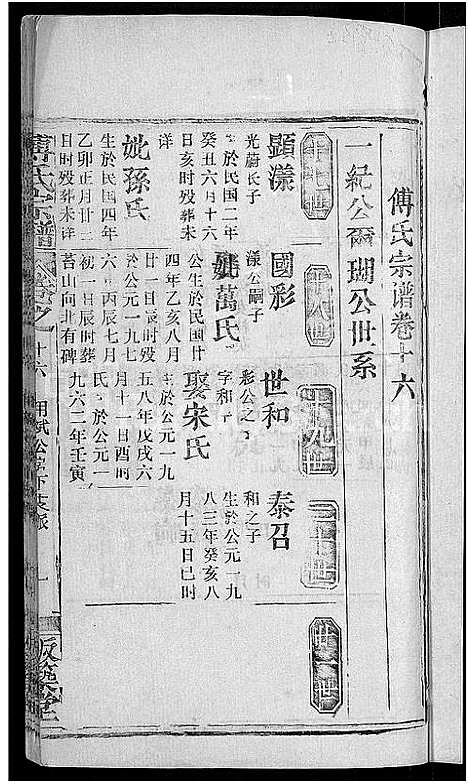 傅氏宗谱卷十六
一紀公裔瑚公世系
十七世
十八世
十九世
二十世
廿一世
顯漾
光蔚长子
生於民国二年
癸丑六月十六
日亥时殁葬未
详
妣孫氏
生於民国四年
乙卯正月廿二
日时殁葬未详
國彩
漾公嗣子
公生於民国廿
四年乙亥八月
廿一日辰时殁
於公元一九七
六年丙辰七月
初一日辰时葬
苔山向北有碑
妣萬氏
世和
彩公之子
字和
生於公元一九
五八年戊戌六
月十一日酉时
娶宋氏
氏生於公元一
九六二年壬寅
泰召
和之子
生於公元一九
八三年癸亥八
月十五日巳时
傅氏宗譜
卷之十六
一
版築堂